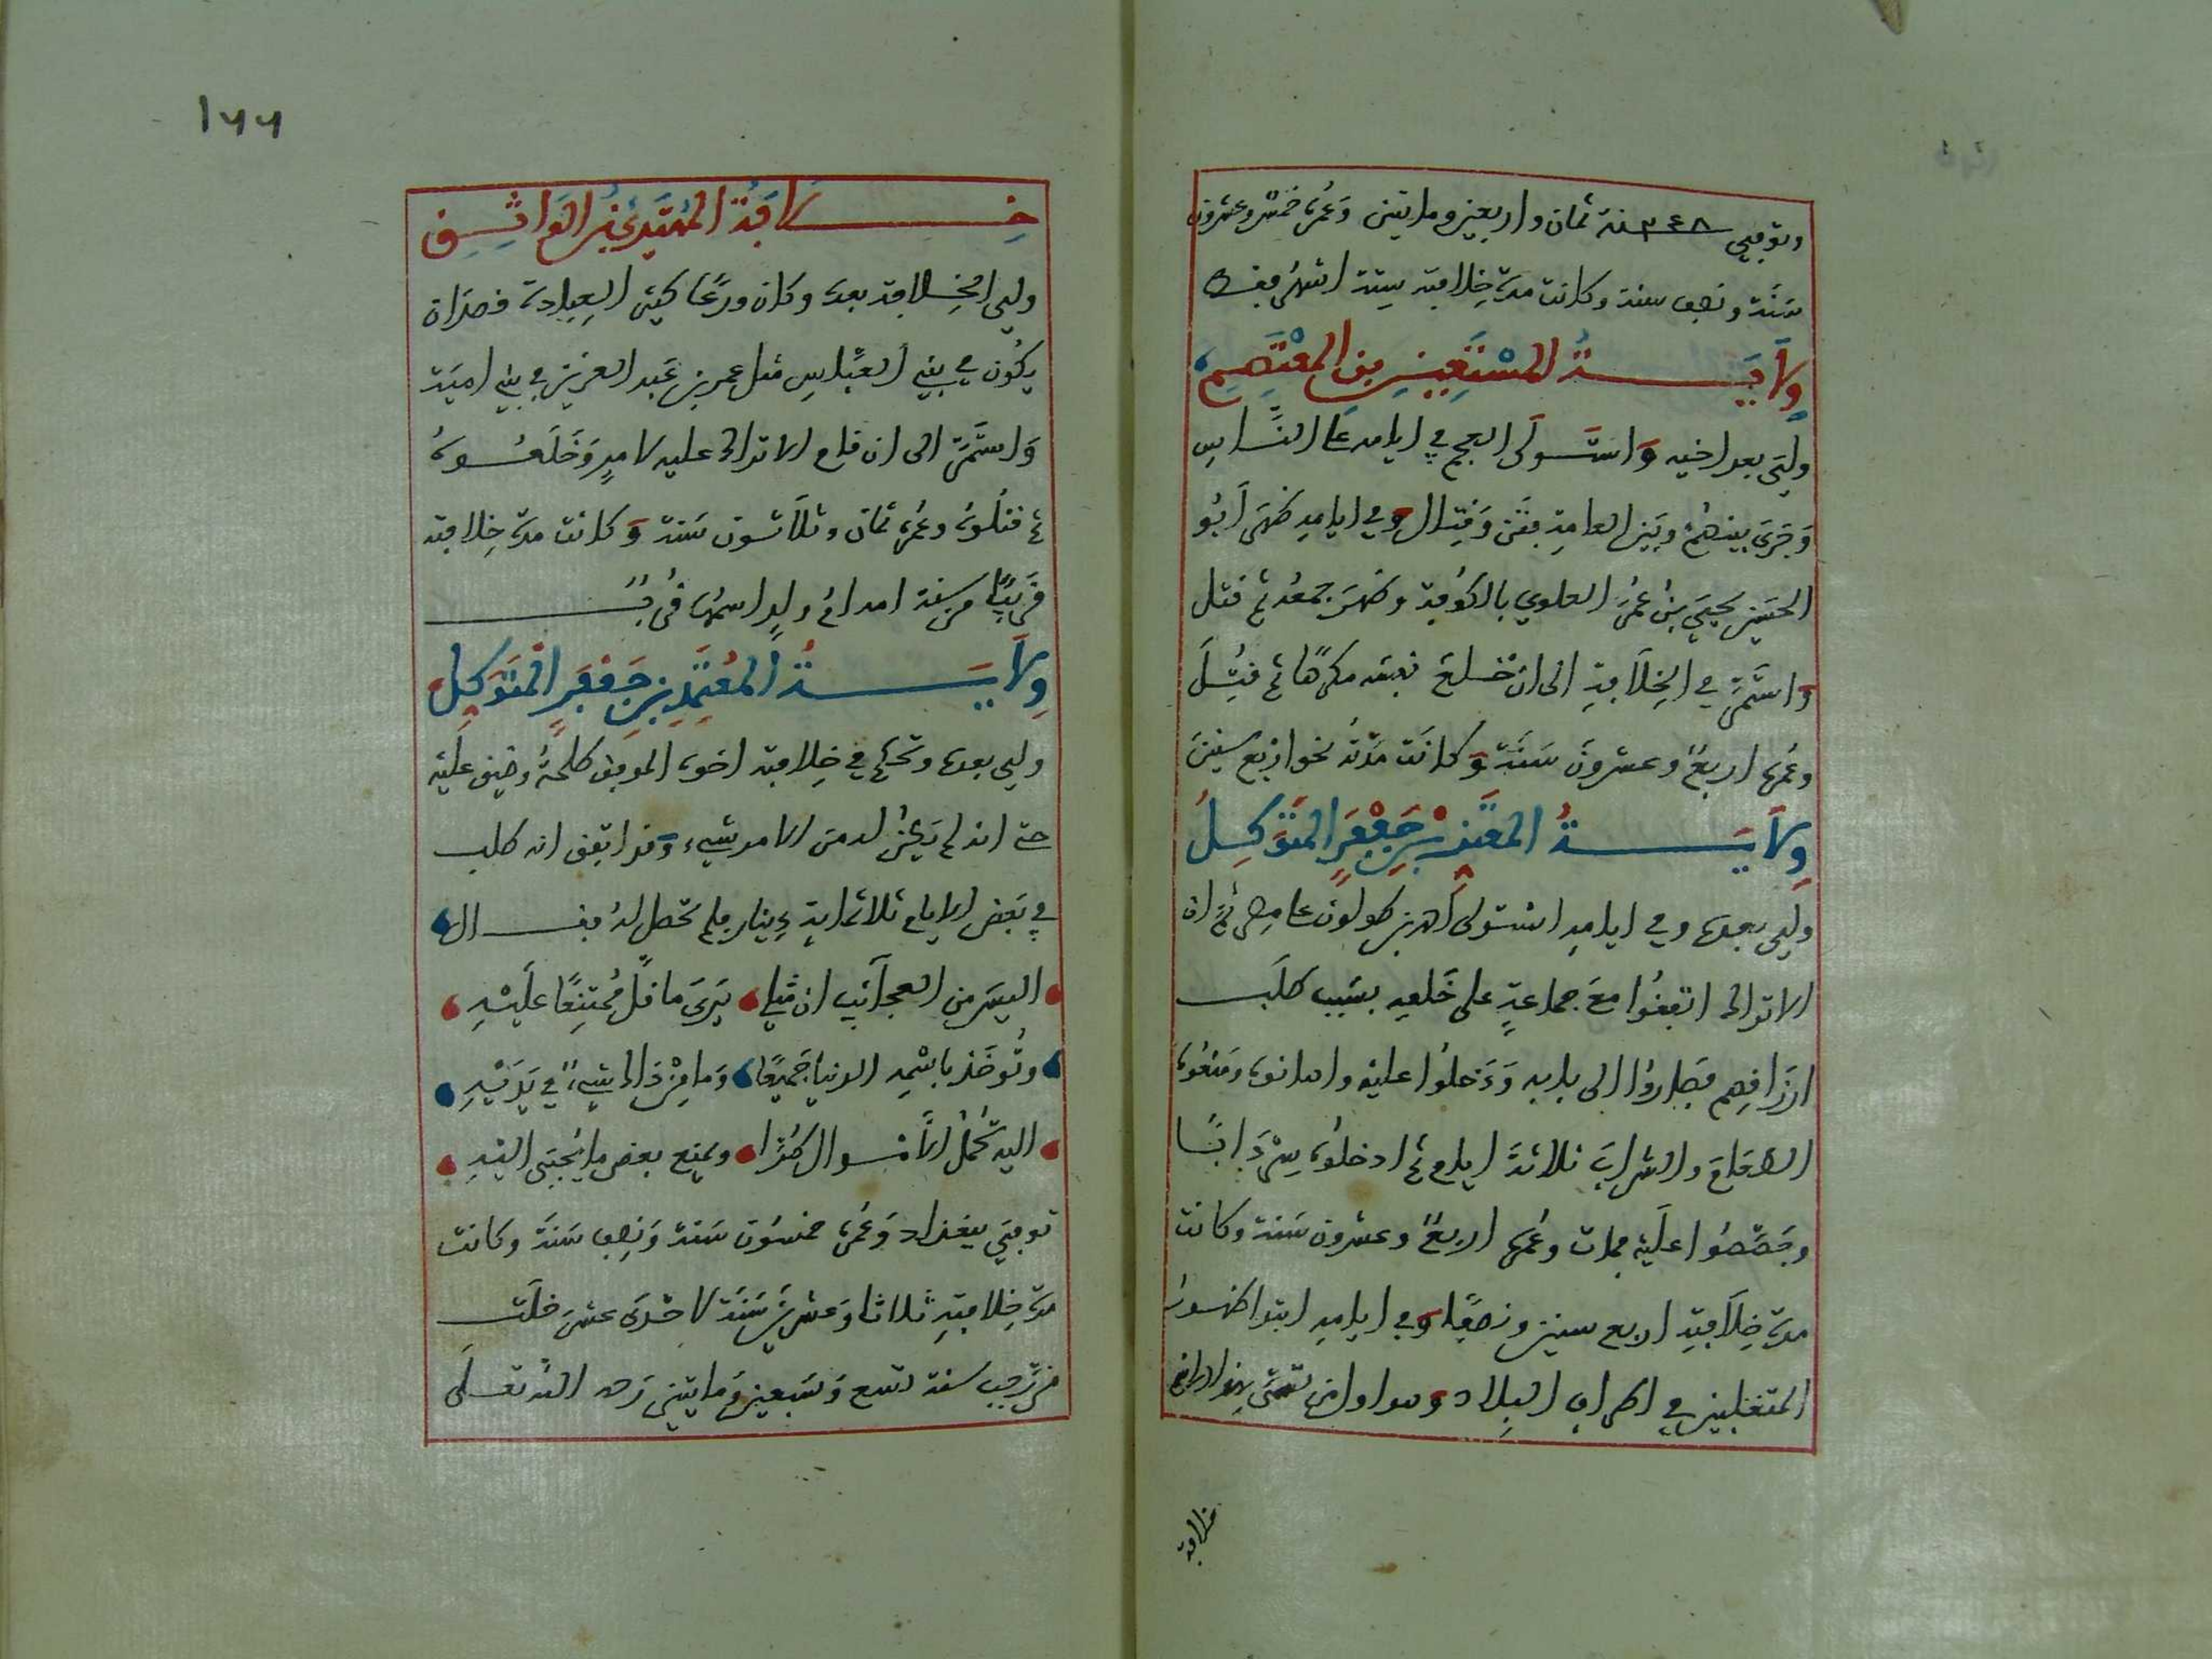 وتوفي ٢٤٨ سنة ثمان واربعين ومايتين وعمره خمس وعشرون
سنة ونصف سنة وكانت مدة خلافته ستة اشهر فقط
ولاية المستعين بن المعتصم
ولي بعد اخيه واستولى العجم في ايامه على الناس
وجرى بينهم وبين العامة فتن وقتال وفي ايامه ظهر ابو
الحسين يحيى بن عمر العلوي بالكوفة وظهر جمعه ثم قتل
واستمر في الخلافة الى ان خلع نفسه مكرها ثم قتل
وعمره اربع وعشرون سنة وكانت مدته نحو اربع سنين
ولاية المعتز بن جعفر المتوكل
ولي بعده وفي ايامه استولى احمد بن طولون على مصر ثم ان
الاتراك اتفقوا مع جماعة على خلعه بسبب طلب
ارزاقهم فصاروا الى بابه ودخلوا عليه واهانوه ومنعوه
الطعام والشراب ثلاثة ايام ثم ادخلوه سردابا
وجصصوا عليه فمات وعمره اربع وعشرون سنة وكانت
مدة خلافته اربع سنين ونصفا وفي ايامه ابتدا ظهور
المتغلبين في اطراف البلاد وهو اول من تسمى بهذا
خلافة
١٦٦
خلافة المهتدي بن الواثق
ولي الخلافة بعده وكان ورعا كثير العبادة قصد ان
يكون في بني العباس مثل عمر بن عبد العزيز في بني امية
واستمر الى ان قام الاتراك عليه لامر وخلعوه
ثم قتلوه وعمره ثمان وثلاثون سنة وكانت مدة خلافته
قريبا من سنة امه ام ولد اسمها قرب
ولاية المعتمد بن جعفر المتوكل
ولي بعده وتحكم في خلافته اخوه الموفق طلحة وضيق عليه
حتى انه لم يكن له من الامر شيء وقد اتفق انه طلب
في بعض الايام ثلاثماية دينار فلم تحصل له فقال
اليس من العجائب ان مثلي يرى ما قل ممتنعا عليه
وتوخذ باسمه الدنيا جميعا وما من ذاك شيء في يديه
اليه تحمل الاموال طرا ويمنع بعض ما يجبى اليه
توفي ببغداد وعمره خمسون سنة ونصف سنة وكانت
مدة خلافته ثلاثا وعشرين سنة لاحدى عشر خلت
من رجب سنة تسع وسبعين ومايتين رحمه الله تعالى